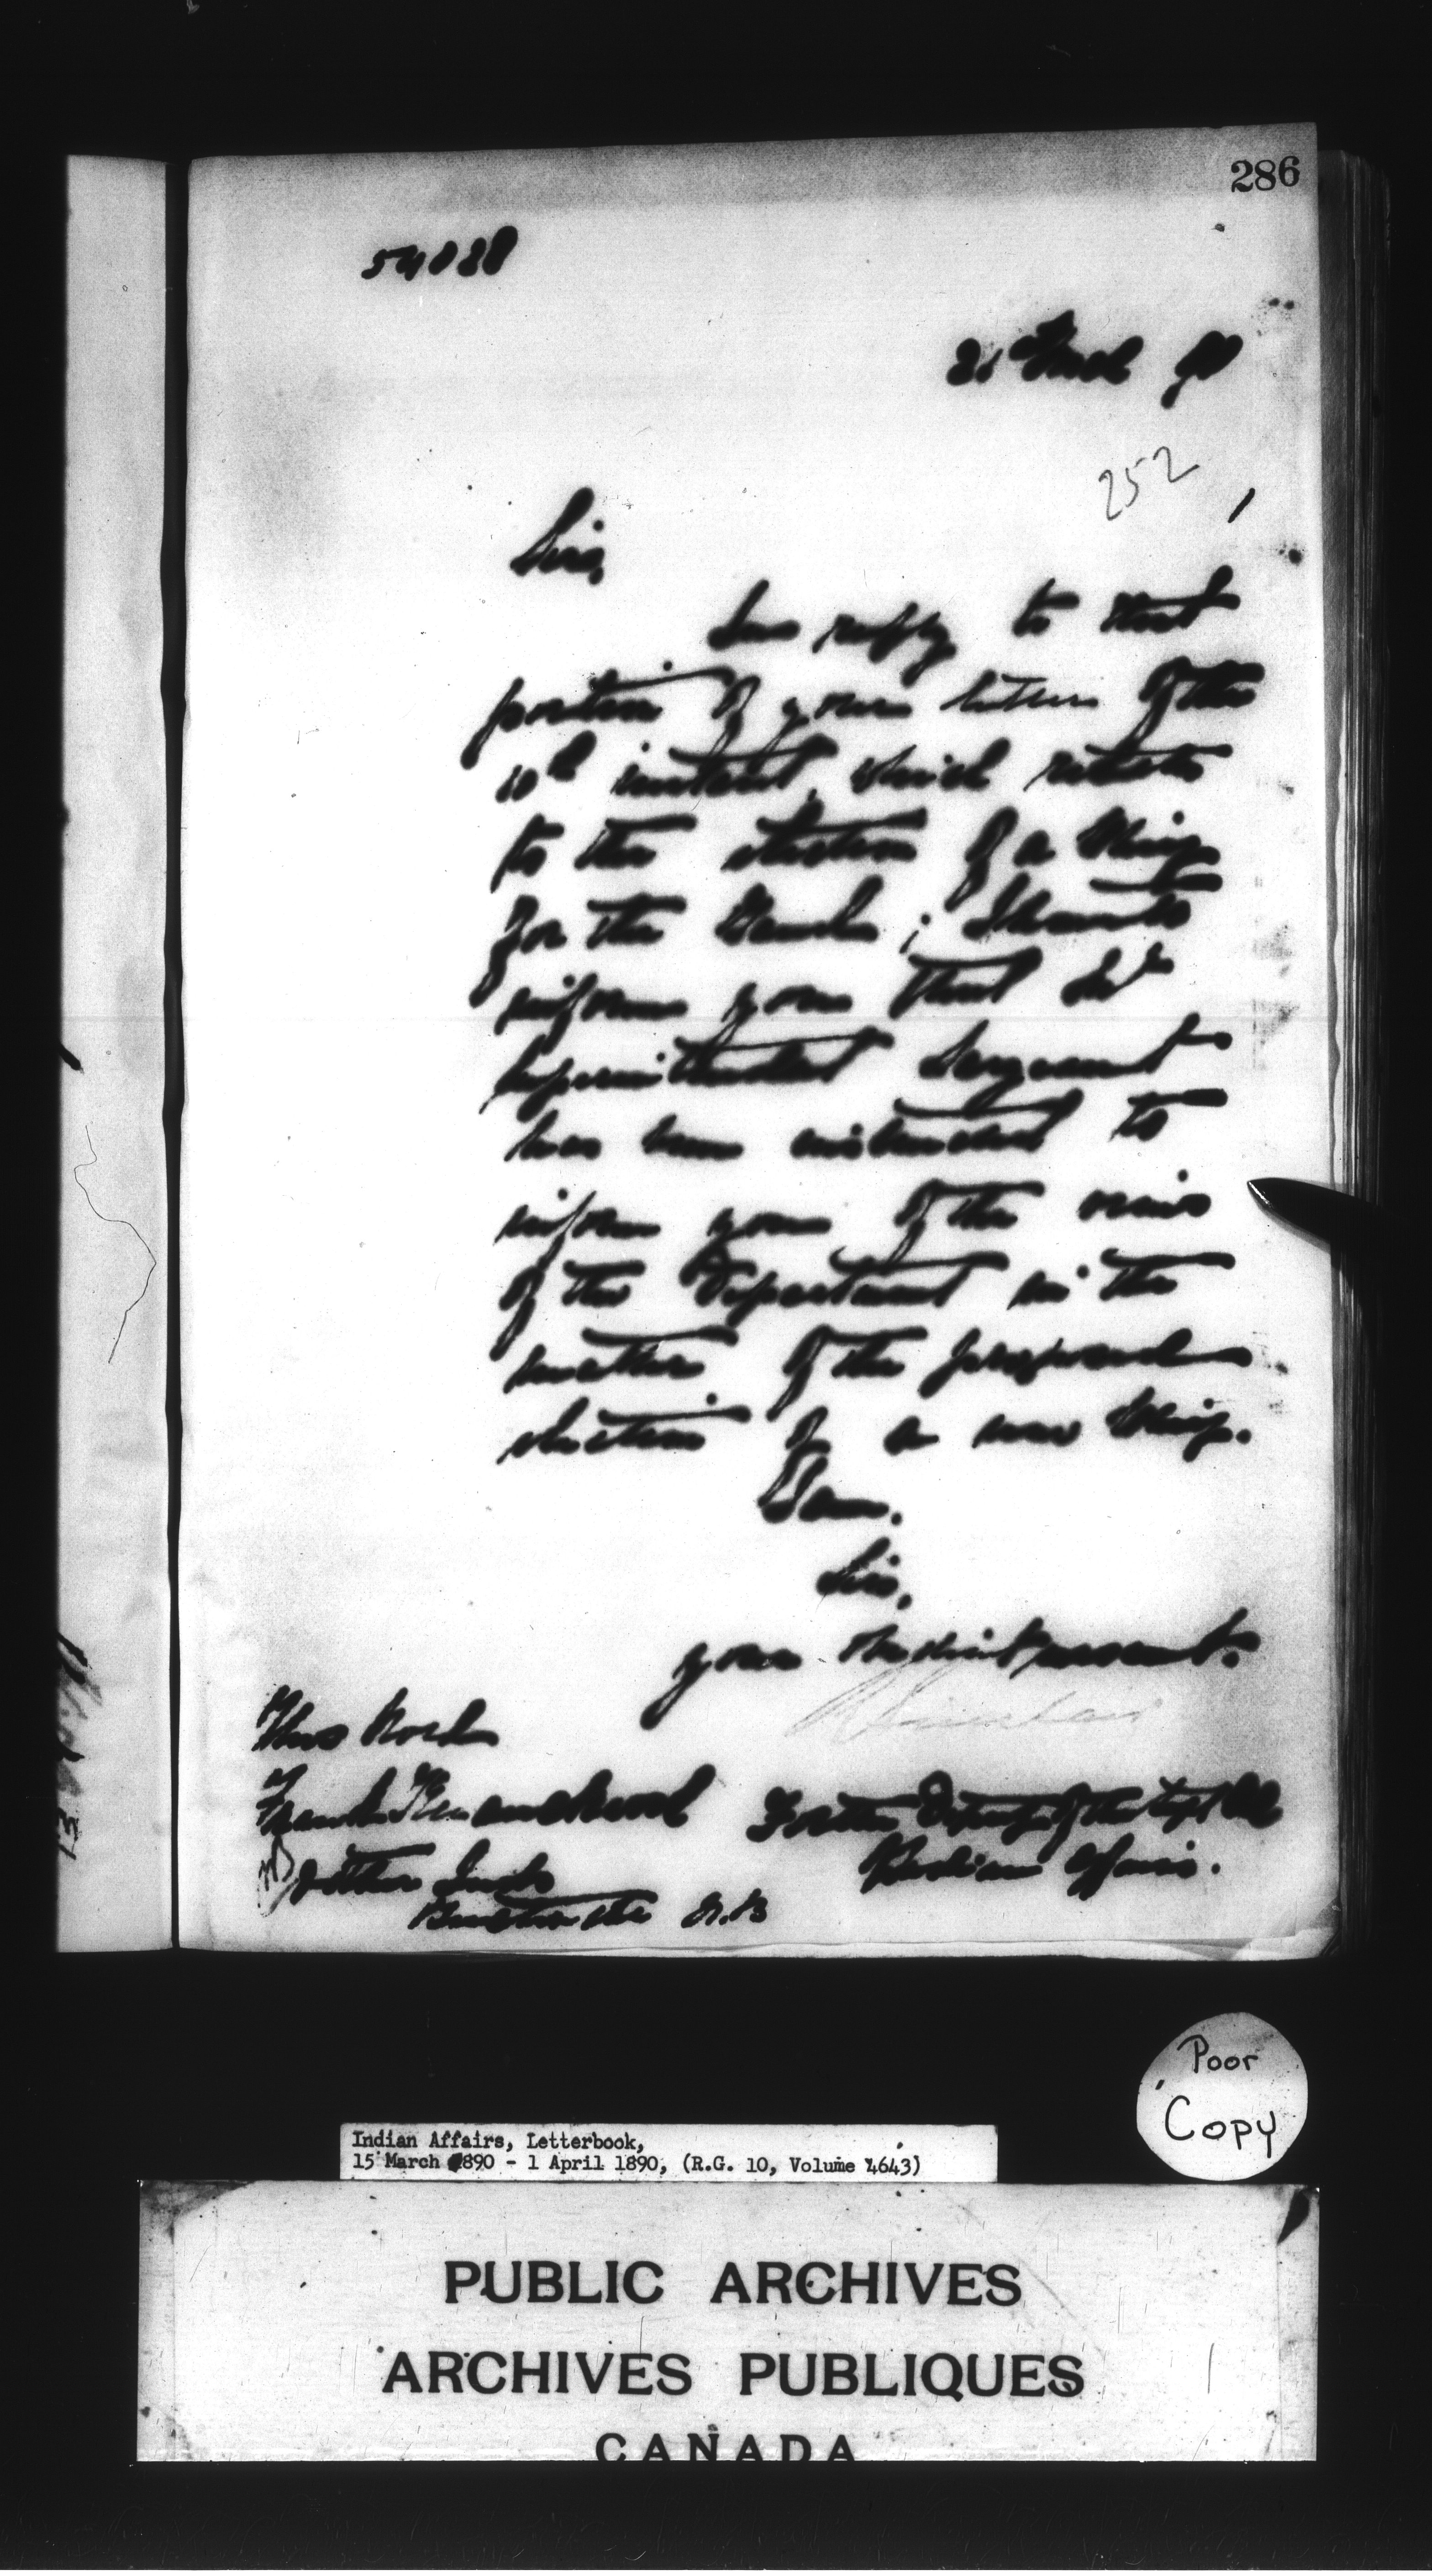 286
21st March 90
252
Sir,
In reply to that
portion of your letter of the
10th instant, which relates
to the election of a Chief
for the Band; I have to
inform you that
Superintendent Sargeant
has been instructed to
inform you of the views
of the Department in the
matter of the proposed
election of a new Chief.
I am.
Sir,
your obedient servant.
R Sinclair
For the Deputy of the Supt Genl
Indian Affairs.
Frank
other Inds
N.B
Poor
Copy
Indian Affairs, Letterbook,
15 March 1890 - 1 April 1890, (R.G. 10, Volume 4643)
PUBLIC ARCHIVES
ARCHIVES PUBLIQUES
CANADA